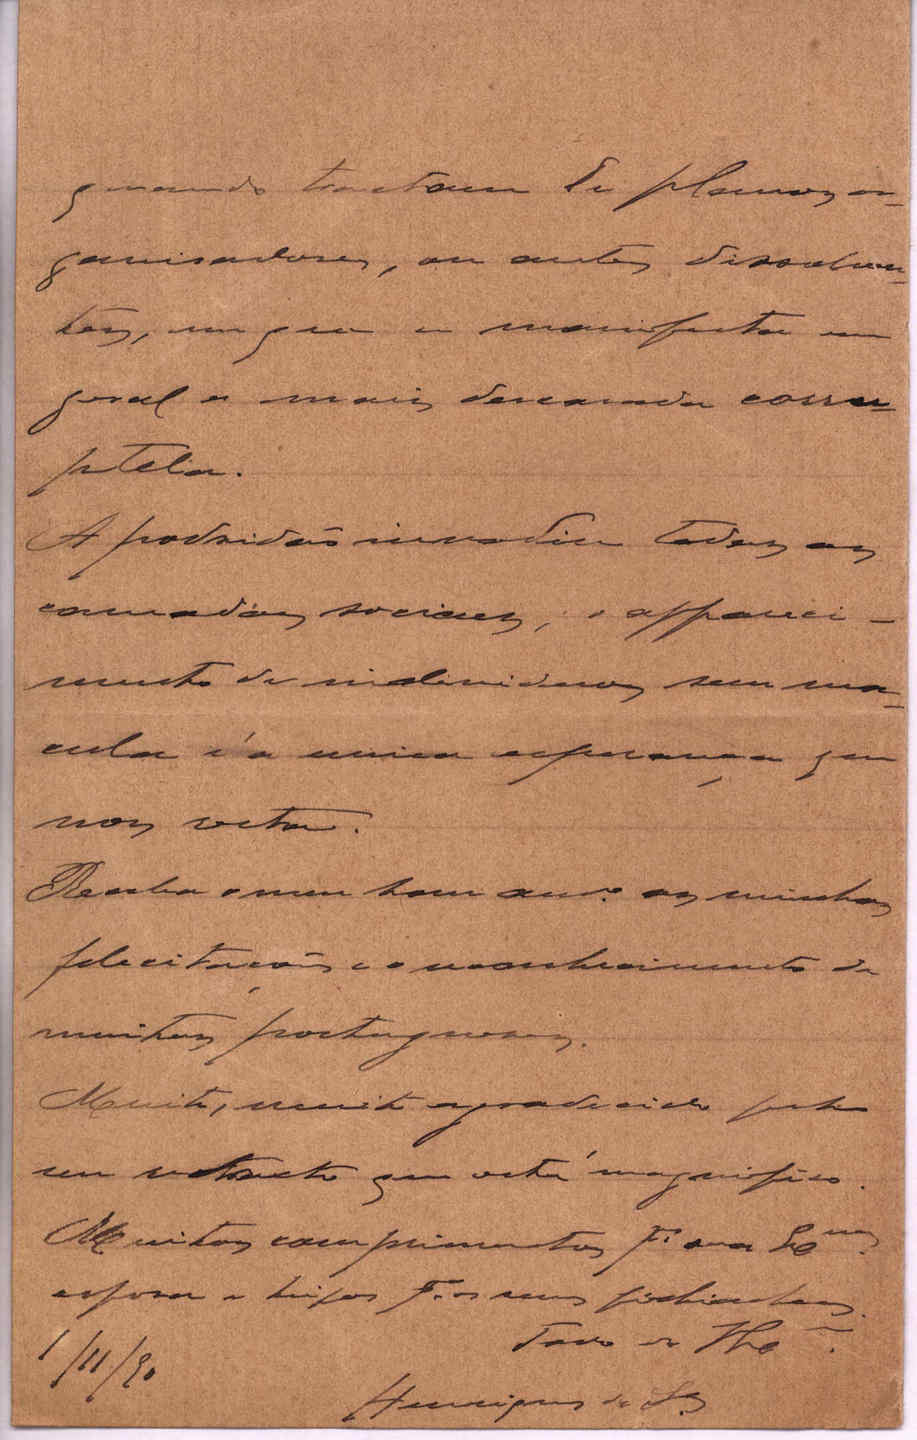 quando tractam de planos or-
ganisadores, ou antes dissolven-
tes, em que se manifesta em
geral a mais descarada corru-
ptela.
A podridão invadiu todas as
camadas sociaes, o appareci-
mento de individuos sem ma-
cula é a unica esperança que
nos resta.
Receba o meu bom am.º as minhas
felicitações e o reconhecimento de
muitos portuguezes.
Muito, muito agradecido pelo
seu retracto que está magnifico.
Muitos comprimentos p.ª sua Ex.ma
esposa e beijos p.ª os seus filhinhos.
1/11/90
Henriques de